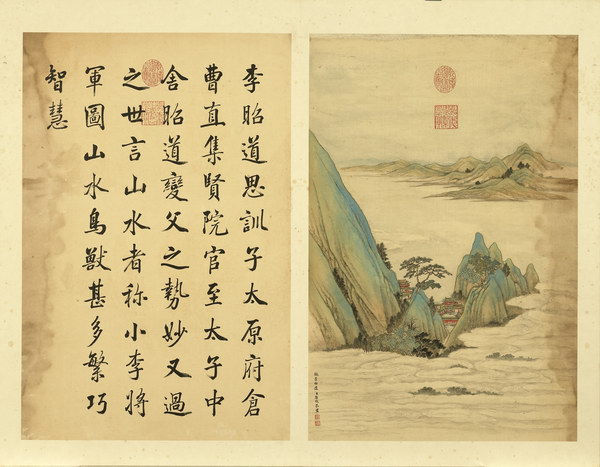 李昭道思訓子太原府倉
曹直集賢院官至太子中
舍昭道變父之勢妙又過
之世言山水者稱小李將
軍圖山水鳥獸甚多繁巧
智慧